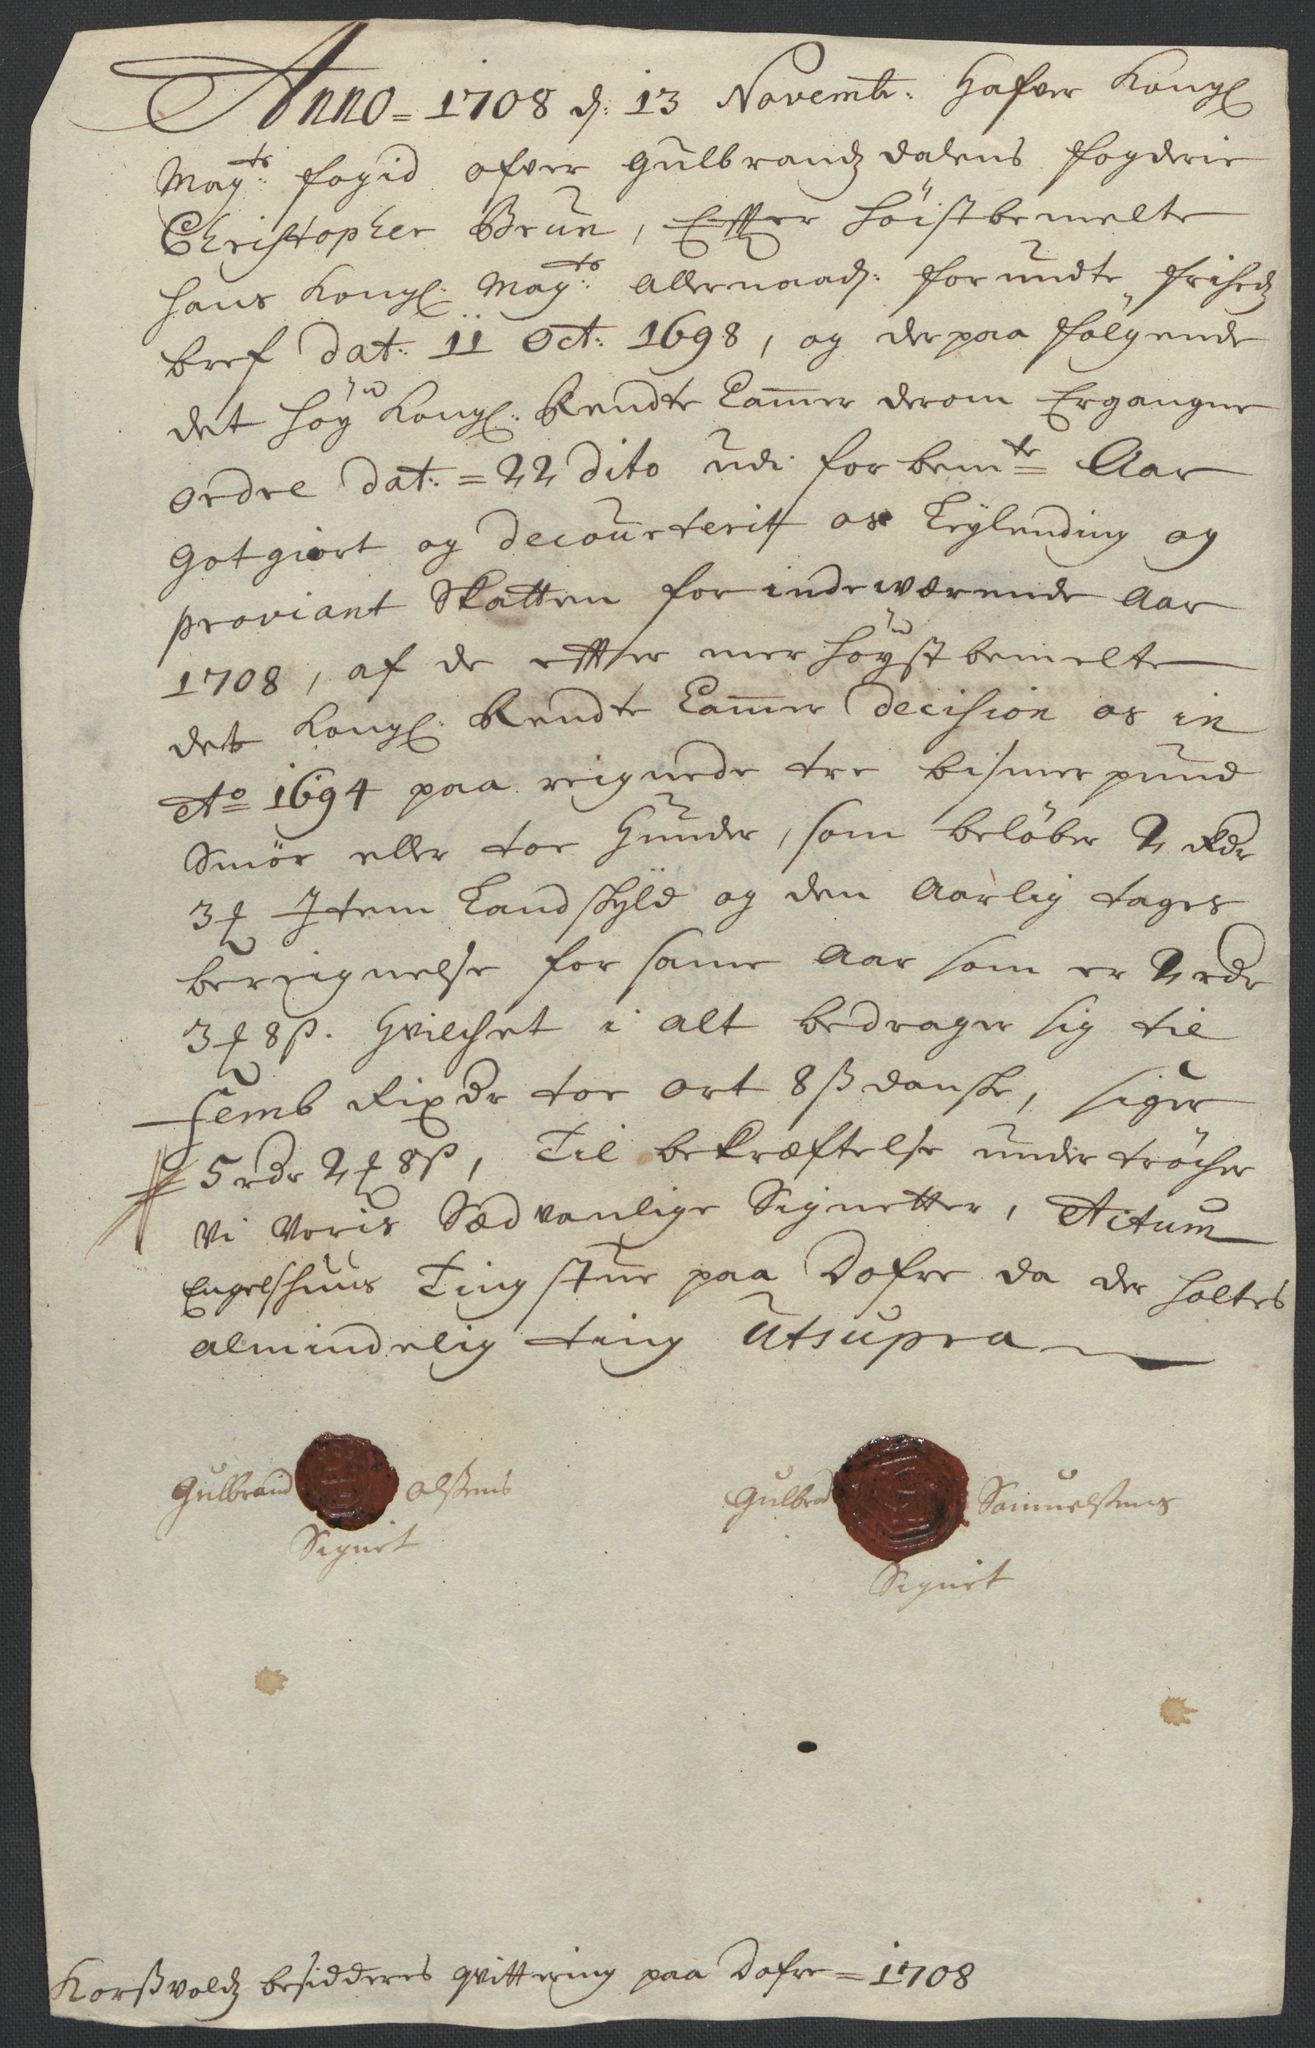 Anno = 1708 d: 13 Novembr: Hafver Kongl
Mayts: fogid ofver Gulbrandzdalens fogderie
Christopher Brun, Effter höistbemelte
hans Kongl: Mayts: Allernaad: forundte friheds
bref dat: 11 Oct: 1698, og derpaa følgende
det höy Kongl: Rendte Camer derom Ergangne
ordre dat: = 22 dito udi forbemte = Aar
Gotgiort og decourterit os Leylending og
proviant Skatten for indeværende Aar
1708, af de effter mer höystbemelte
dets Kongl: Rendte Camer decision os in
Ao 1694 paa reignede tre bismerpund
Smör eller toe Hunder, som beløber 2 Rdr
3 Item Landskyld og den Aarlig tages
bereignelse for same Aar som er 2 rdr
3 8 ß. Hvilchet i alt bedrager sig til
femb Rixdr toe ort 8 ß danske, siger
5 rdr 2 8 ß, Til bekræftelse undertröcher
Vi Voris Sædvanlige Signetter, Actum
Engelshuus Tingstue paa Dofre da der holtes
almindelig ting Utsupra
Gulbrand Olßens
Signet
Gulbrad Samuelßens
Signet
Korßvolds besidderes qvittering paa Dofre = 1708